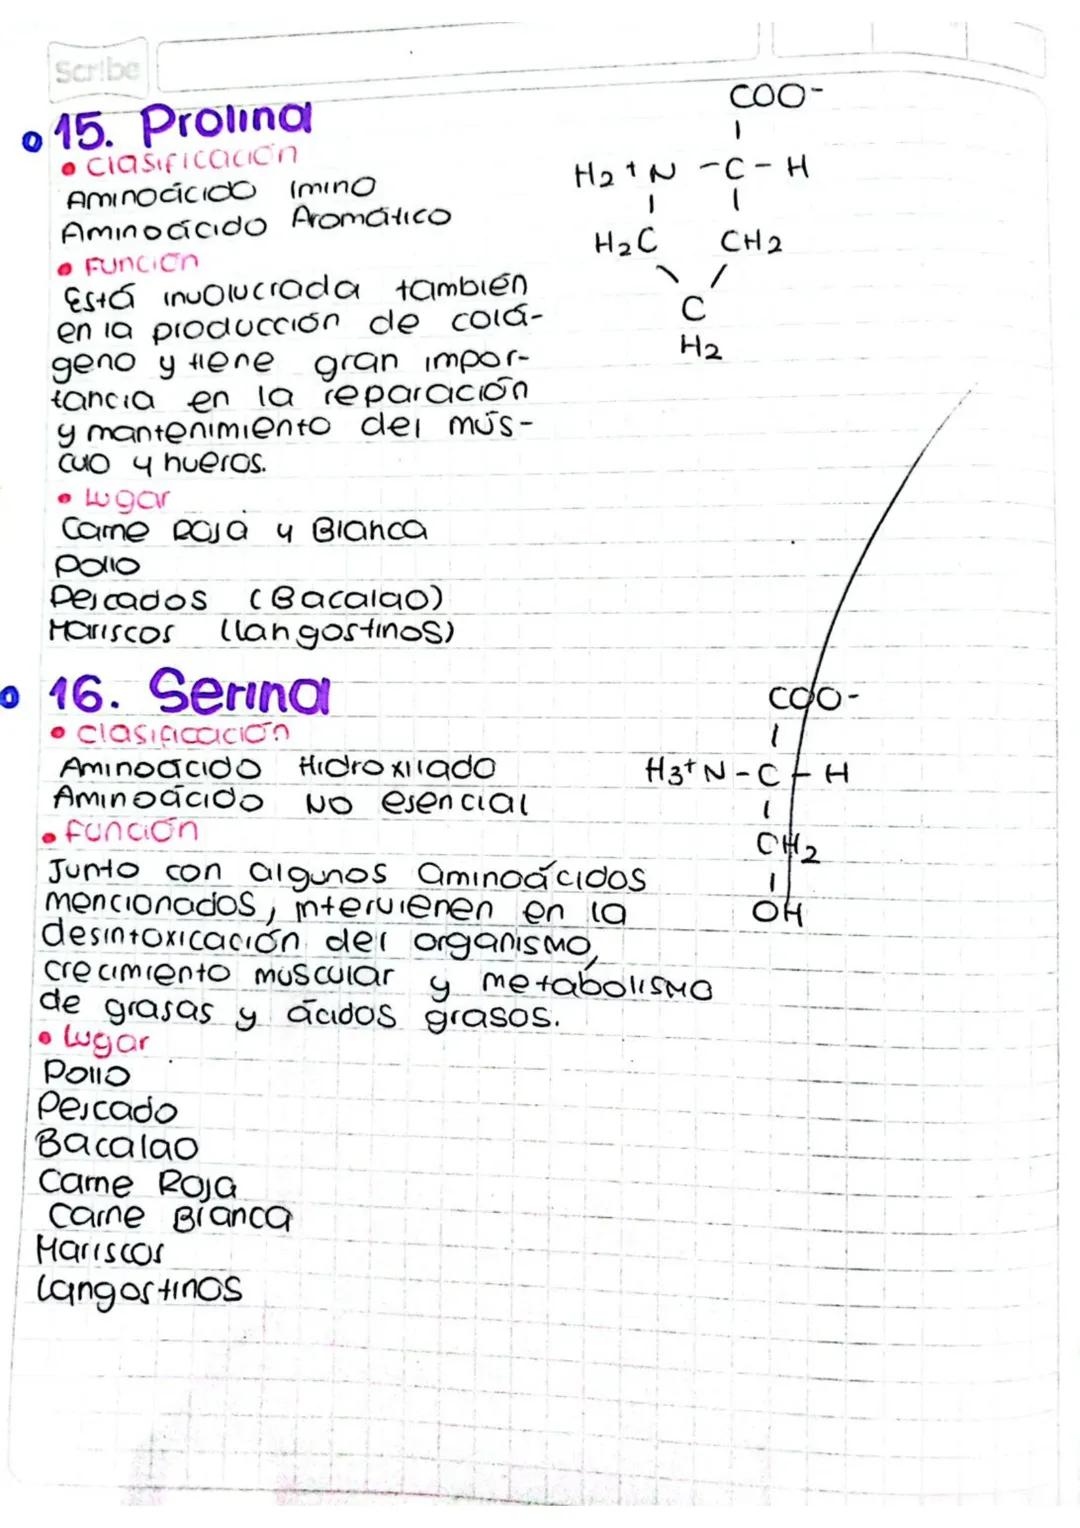 Scribe
15. Prolina
• Clasificación
Aminoácido Imino
Aminoácido Aromático
• Función
Está involucrada también
en la producción de colá-
geno y tiene gran impor-
tancia en la reparación
y mantenimiento del mús-
culo y hueros.
• Lugar
Carne Roja y Blanca
Pollo
Pescados (Bacalao)
Mariscos (langostinos)
COO-
H2+N - C - H
H2C CH2
C
H2
16. Serina
• Clasificación
Aminoácido Hidroxilado
Aminoácido NO esencial
• Función
Junto con algunos aminoácidos
mencionados, intervienen en la
desintoxicación del organismo,
crecimiento muscular y metabolismo
de grasas y ácidos grasos.
• Lugar
Pollo
Pescado
Bacalao
Carne Roja
Carne Blanca
Mariscos
Langostinos
COO-
H3+N - C - H
CH2
OH